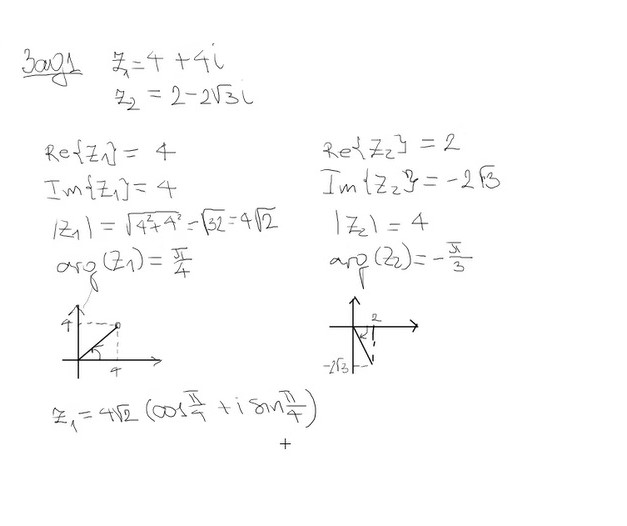 Зад1 z₁ = 4 + 4i
z₂ = 2 - 2√3i
Re{z₁} = 4
Im{z₁} = 4
|z₁| = √4²+4² = √32 = 4√2
arg(z₁) = π/4
4
4
Re{z₂} = 2
Im{z₂} = -2√3
|z₂| = 4
arg(z₂) = -π/3
2
-2√3
z₁ = 4√2 (cos π/4 + i sin π/4)